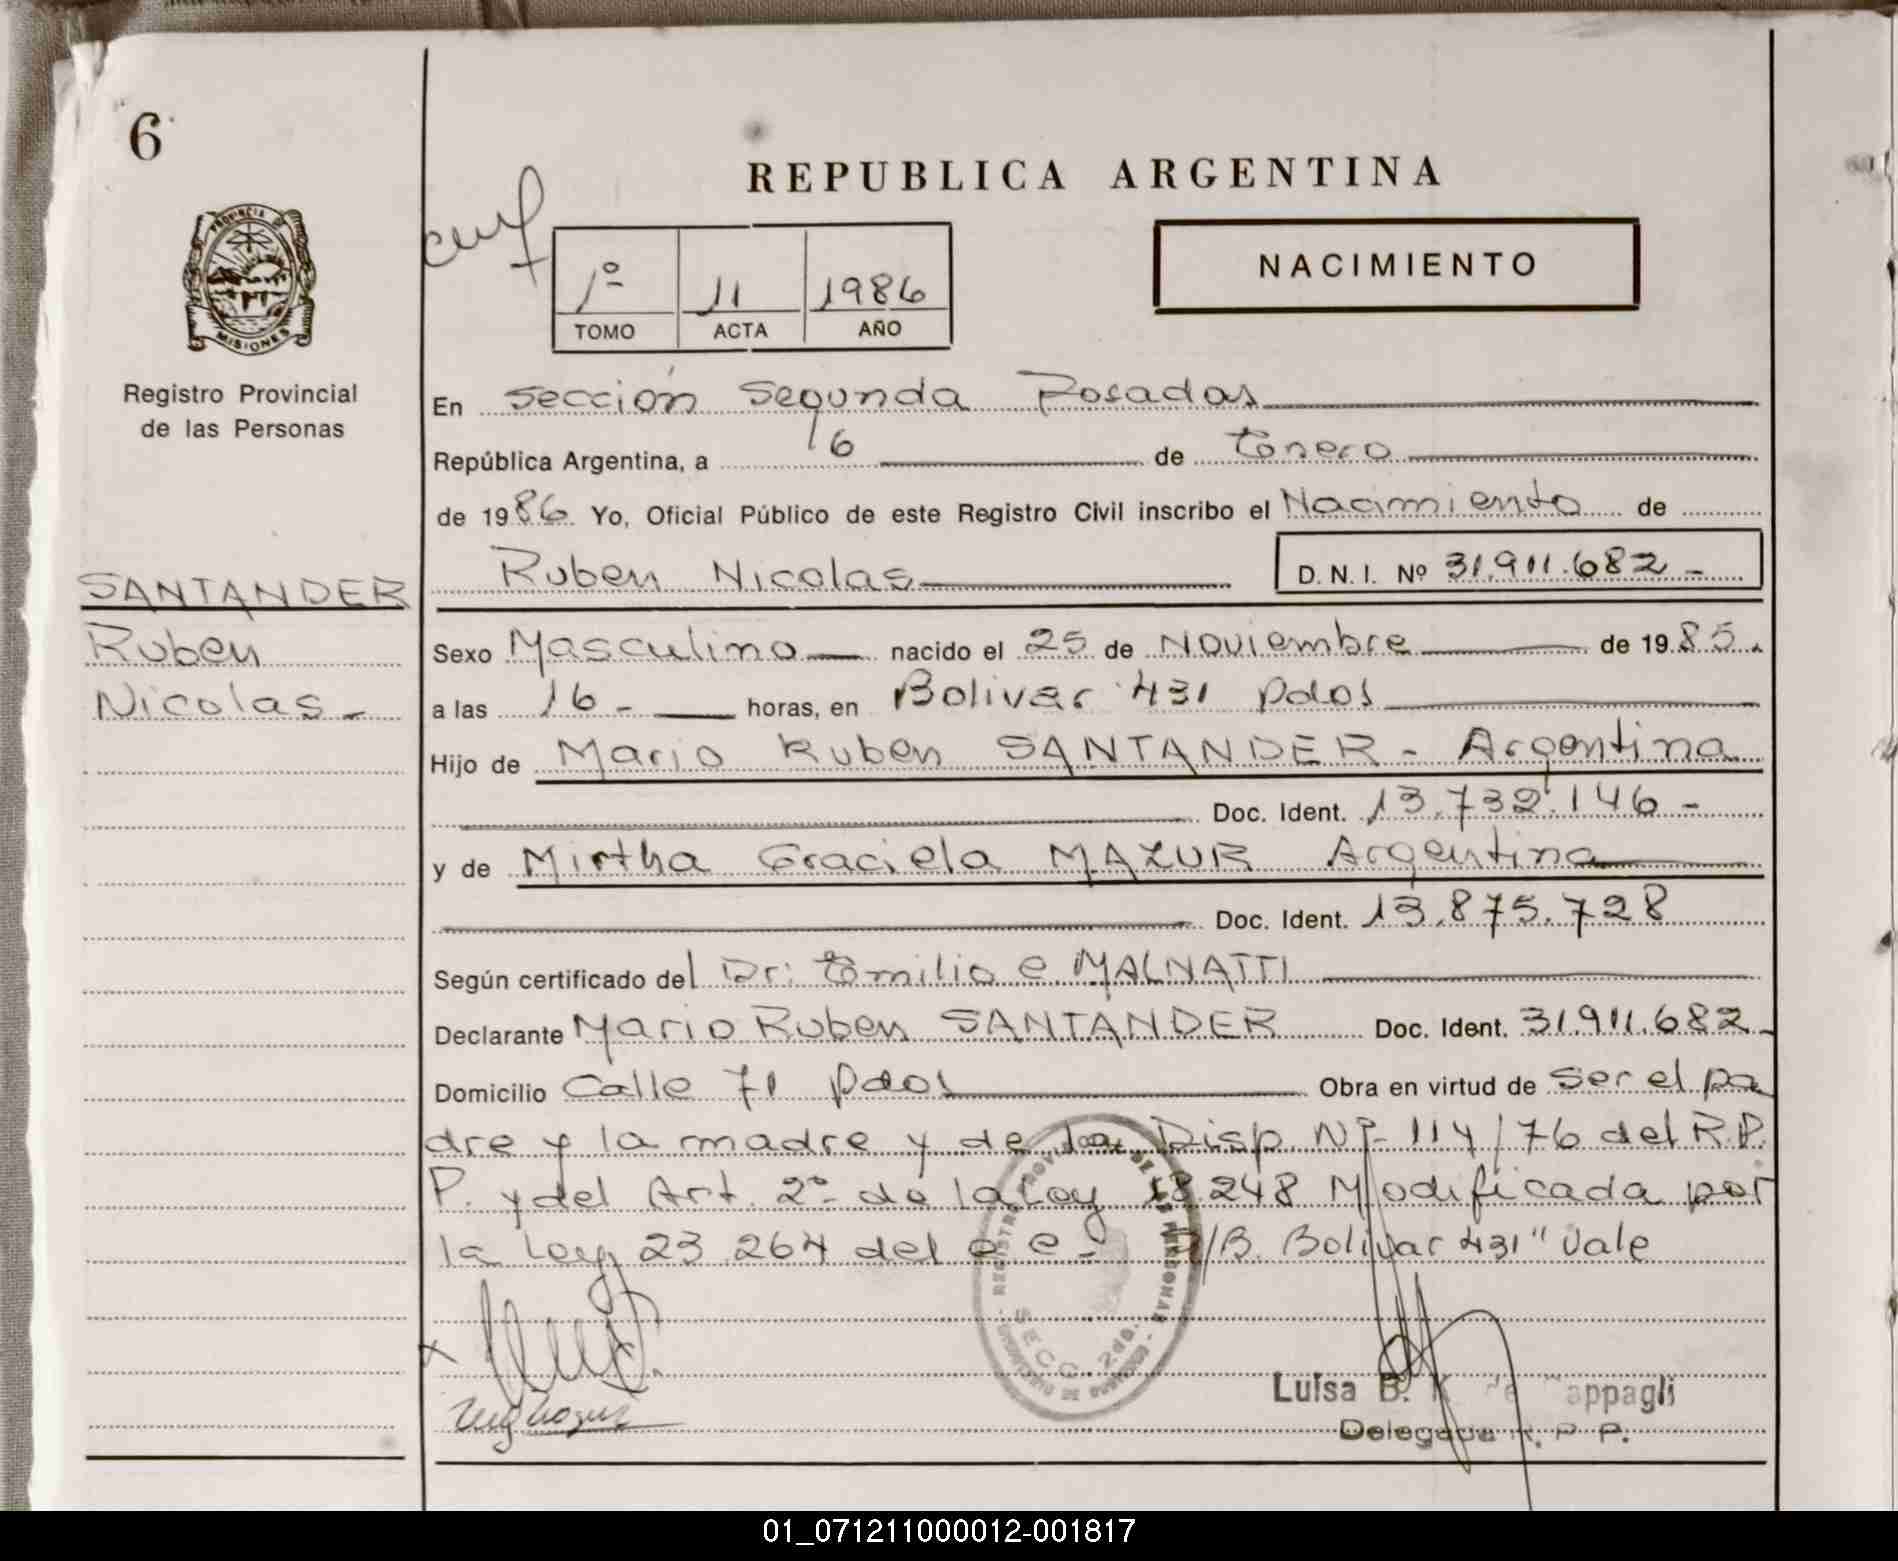 6
PROVINCIA DE
MISIONES
Registro Provincial
de las Personas
SANTANDER
Ruben
Nicolas -
REPUBLICA ARGENTINA
1º 11 1986
TOMO ACTA AÑO
NACIMIENTO
En Sección Segunda Posadas
República Argentina, a 16 de Enero
de 1986 Yo, Oficial Público de este Registro Civil inscribo el Nacimiento de
Ruben Nicolas D. N. I. Nº 31.911.682 -
Sexo Masculino nacido el 25 de Noviembre de 1985.
a las 16 - horas, en Bolivar 431 Pdas
Hijo de Mario Ruben SANTANDER - Argentina
Doc. Ident. 13.732.146 -
y de Mirtha Graciela MAZUR Argentina
Doc. Ident. 13.875.728
Según certificado del Dr: Emilio e MALNATTI
Declarante Mario Ruben SANTANDER Doc. Ident. 31.911.682 -
Domicilio Calle 71 Pdas Obra en virtud de ser el pa
dre y la madre y de la Disp. Nº 114/76 del R.P.
P. y del Art. 2º de la Ley 18.248 Modificada por
la Ley 23.264 del e - R/B. Bolivar 431" Vale
REGISTRO PROVINCIAL DE LAS PERSONAS
SECC. 2da.
Luisa B. K. de Cappagli
Delegada R. P. P.
01_071211000012-001817